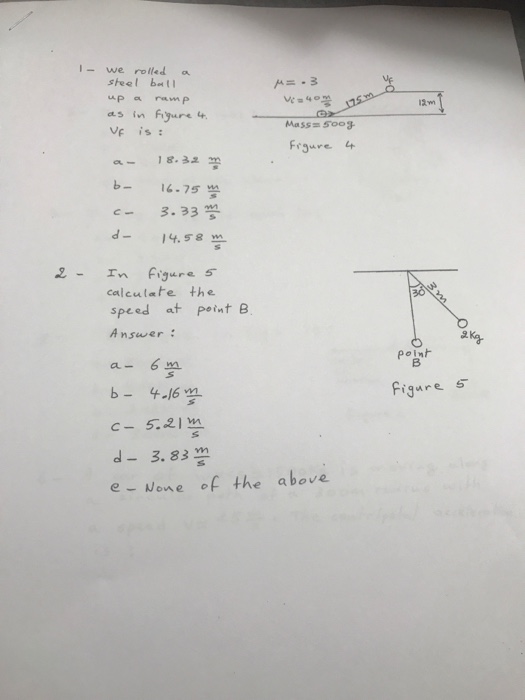 1- we rolled a
steel ball
up a ramp
as in figure 4.
Vf is :
a- 18.32 m/s
b- 16.75 m/s
c- 3.33 m/s
d- 14.58 m/s
μ = .3
Vi = 40 m/s
175m
Vf
12m
Mass = 500g
Figure 4
2 - In figure 5
calculate the
speed at point B.
Answer :
a- 6 m/s
b- 4.16 m/s
c- 5.21 m/s
d- 3.83 m/s
e - None of the above
30
3m
2kg
point
B
Figure 5